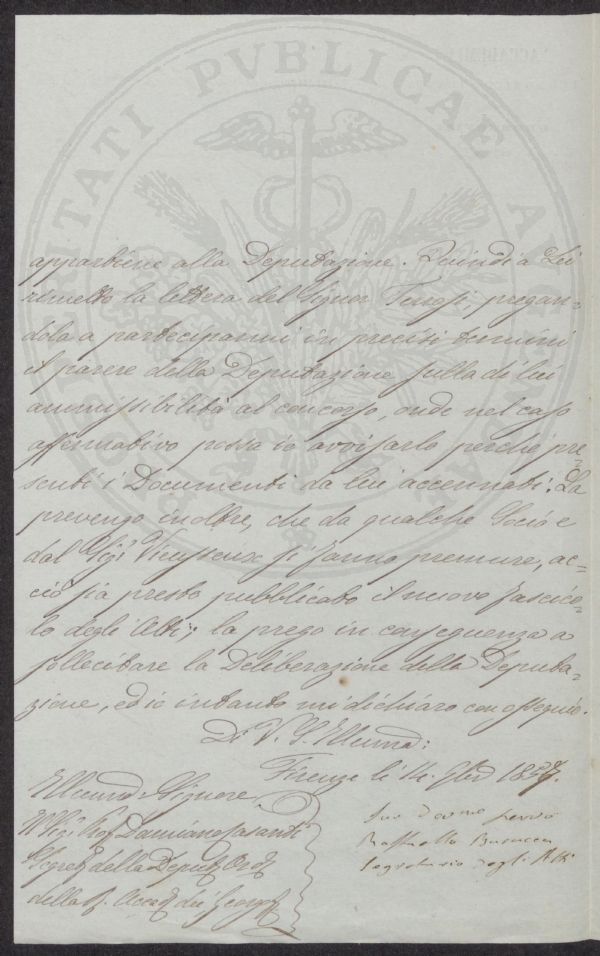 PROSPERITATI PVBLICAE AVGENDAE
appartiene alla Deputazione. Quindi a Lei
rimetto la lettera del Signor Fenosi, pregan=
dola a parteciparmi in precisi termini
il parere della Deputazione sulla di lui
ammissibilità al concorso, onde nel caso
affermativo possa io avvisarlo perchè pre=
senti i Documenti da lui accennati. La
prevengo inoltre, che da qualche Socio e
dal Sigr Vieusseux si fanno premure, ac=
ciò sia presto pubblicato il nuovo fascico=
lo degli Atti; la prego in conseguenza a
sollecitare la Deliberazione della Deputa=
zione, ed io intanto mi dichiaro con ossequio.
Di V. S. Illuma:
Firenze li 14. 1857.
Illumo Signore
Il Sigr Prof Damiano Casanti
Segreto della Deput Ord
della R. Accad dei Georg
Suo Devmo servo
Raffaello Busacca
Segretario degli Atti